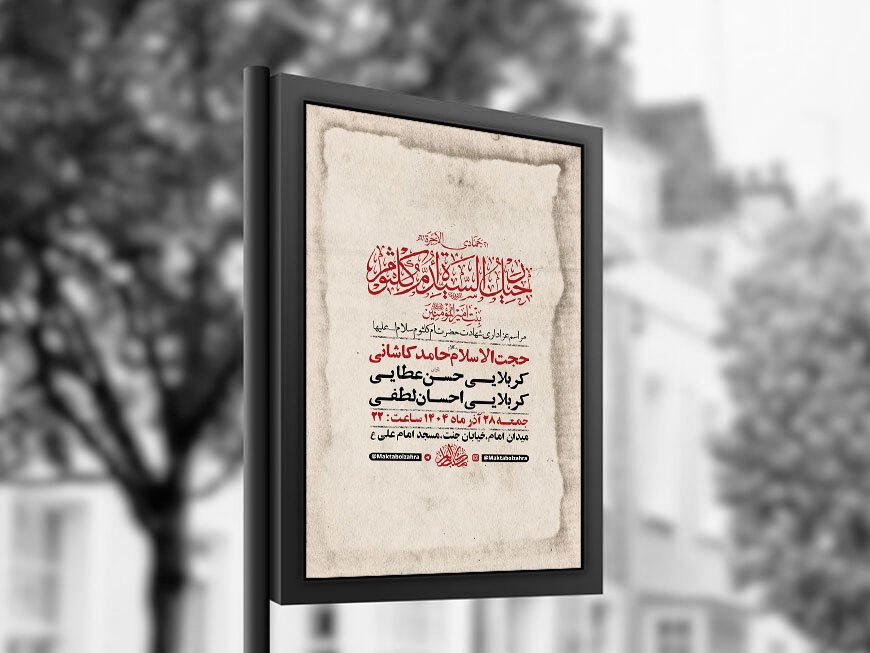 جمادی الآخرة
رحیل السیدة أم کلثوم
بنت امیرالمومنین
مراسم عزاداری شهادت حضرت ام کلثوم سلام الله علیها
حجت الاسلام حامد کاشانی
کربلایی حسن عطایی
کربلایی احسان لطفی
جمعه ۲۸ آذر ماه ۱۴۰۴ ساعت: ۲۲
میدان امام، خیابان جنت، مسجد امام علی ع
@Maktabolzahra @Maktabolzahra